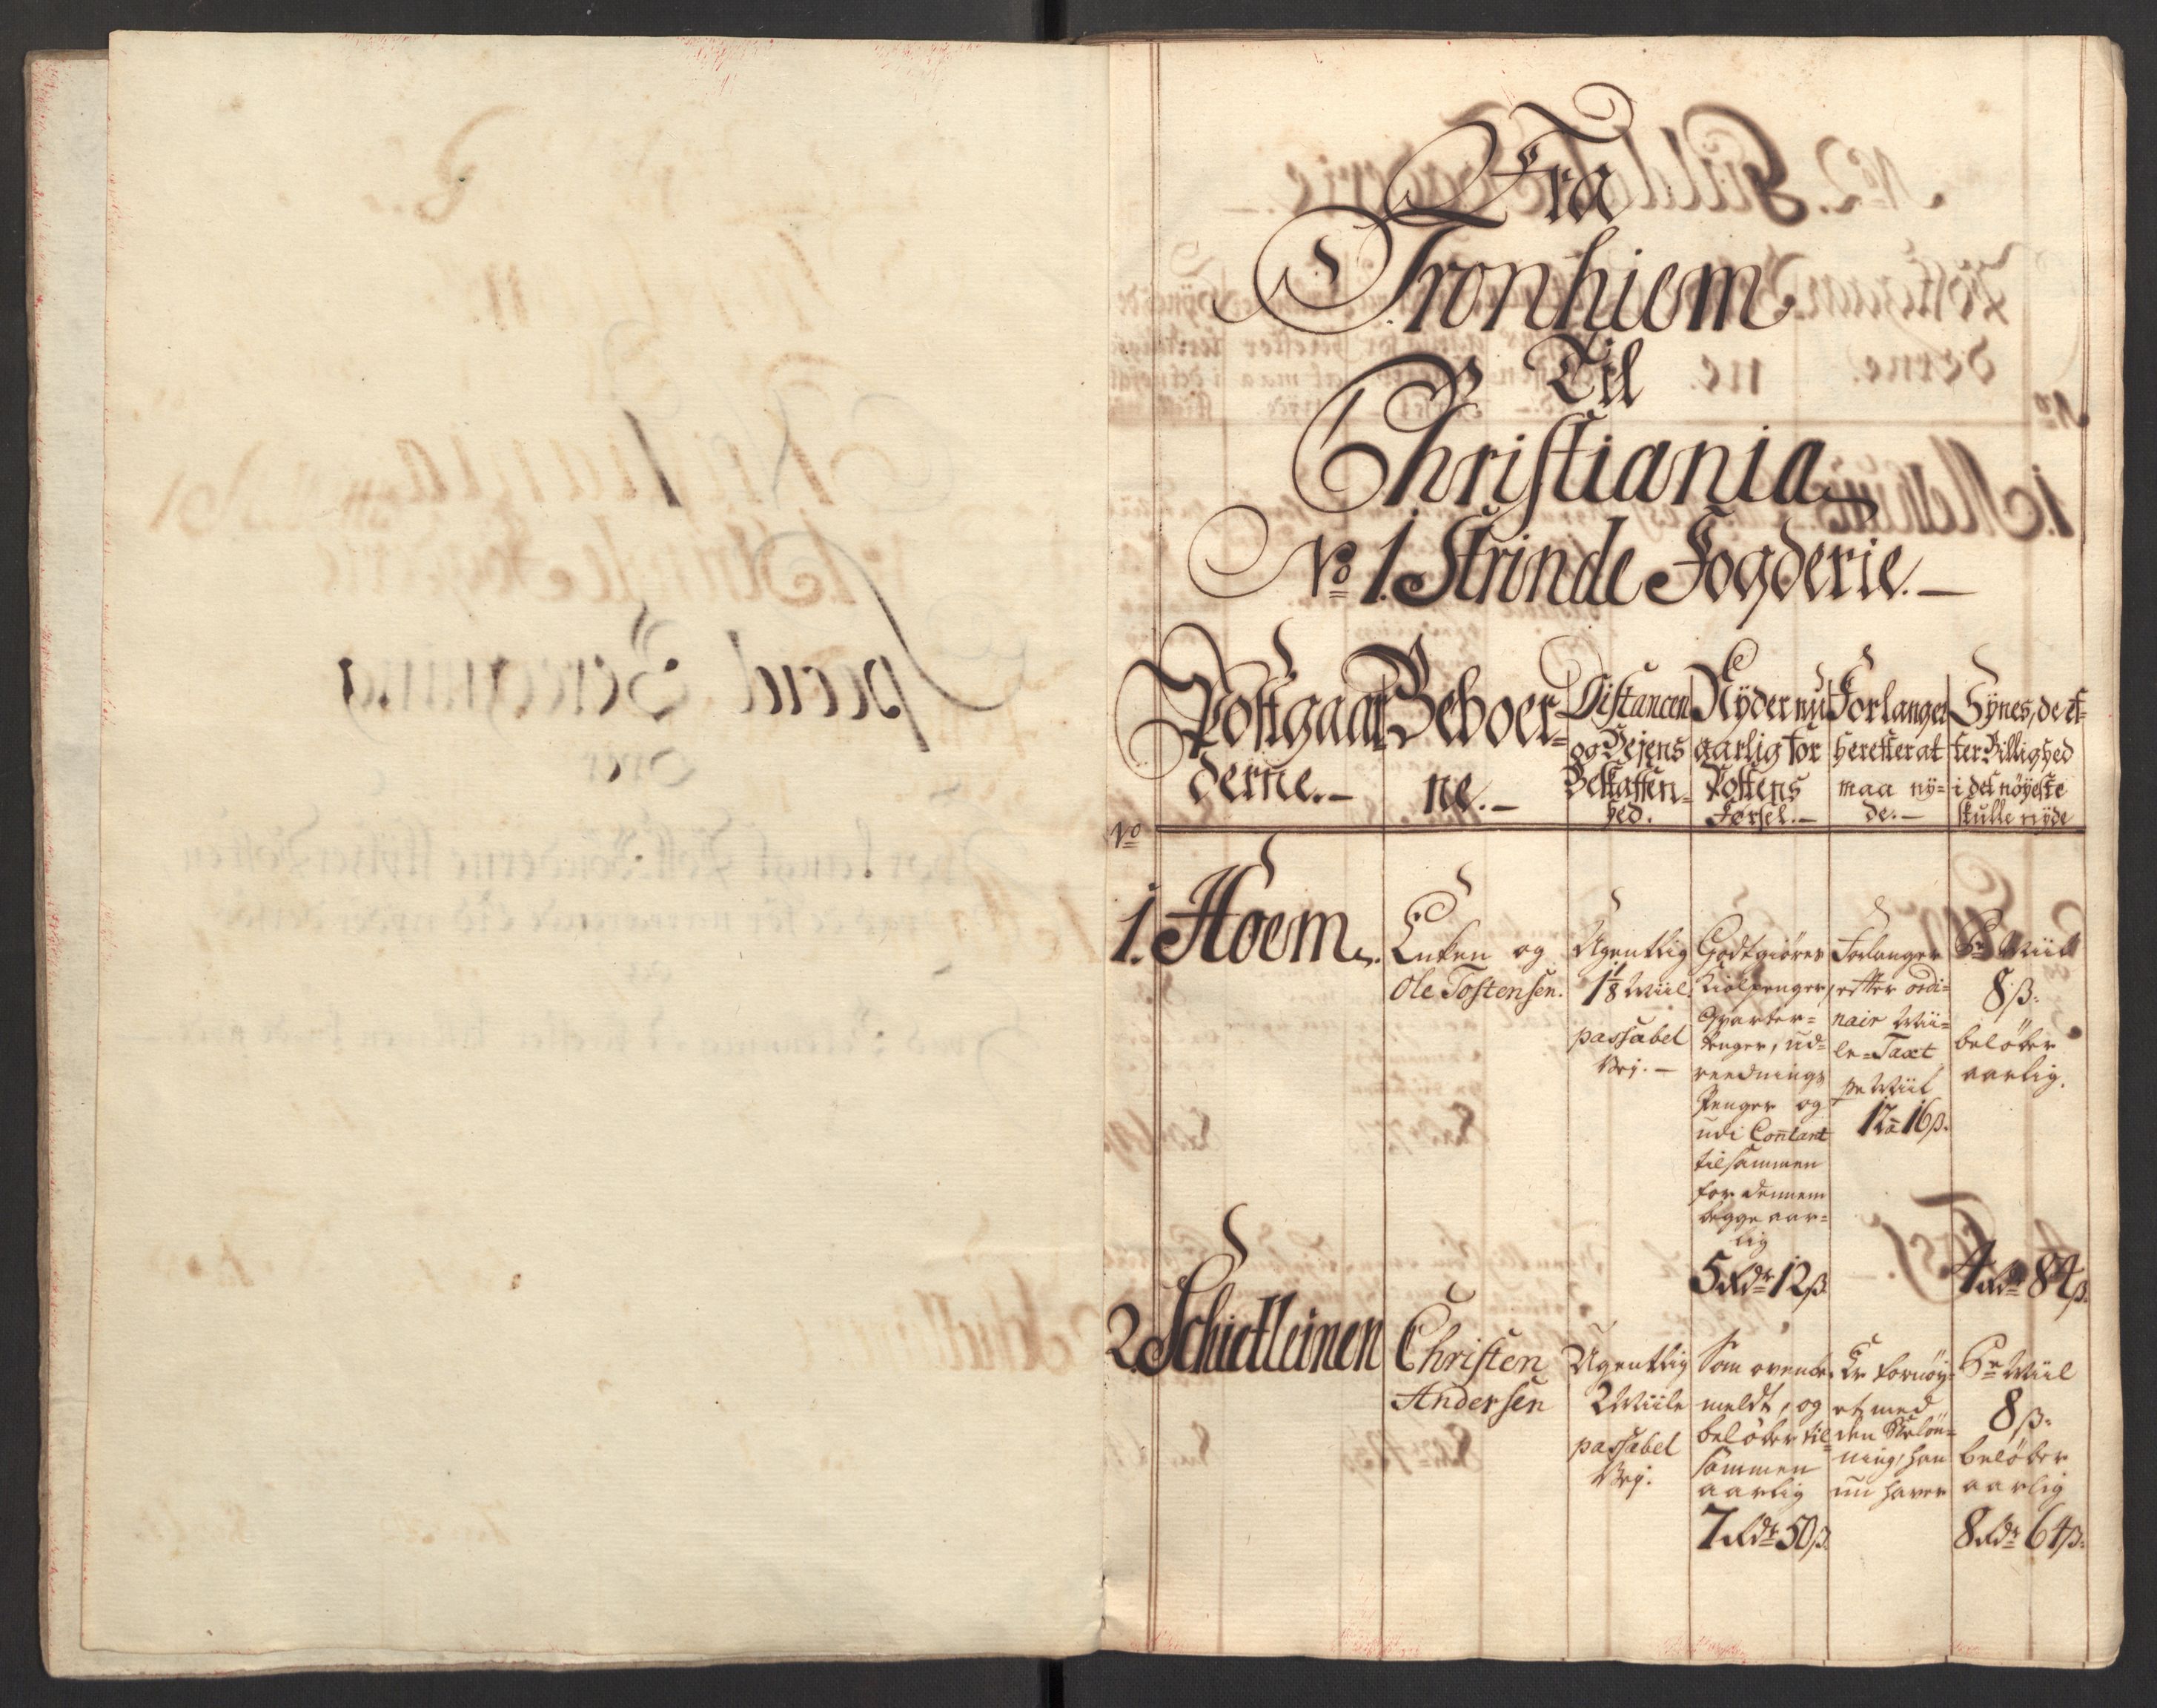 Fra
Tronhiem
Til
Christiania
No 1. Strinde Fogderie.
Postgaar-
derne.
Beboer-
ne.
Distancen
og Vejens
Beskaffen-
hed.
Nyder nu
aarlig for
Postens
Førsel.
Forlanger
herefter at
maa ny-
de.
Synes, de ef-
ter Billighed
i det nøyeste
skulle nyde
No
1. Hoem.
Enken og
Ole Tostensen.
Ugentlig
1 1/8 Miil.
passabel
Vej.
Godtgiøres
penger,
Qvarter-
penger, ud-
reednings
Penger og
udi Contant
tilsammen
for dennem
begge aar-
lig
5 Rdr 12 ß.
Forlanger
efter ordi-
nair Mii-
le-Taxt
pr Miil
12 à 16 ß.
Pr Miil
8 ß.
beløber
aarlig.
4 Rdr 84 ß.
2. Schietleinen
Christen
Andersen
Ugentlig
2 Miile
passabel
Vej.
Som ovenbe-
meldt, og
beløber til-
sammen
aarlig
7 Rdr 50 ß.
Er fornøy-
et med
den Beløn-
ning, han
nu haver
Pr Miil
8 ß.
beløber
aarlig
8 Rdr 64 ß.